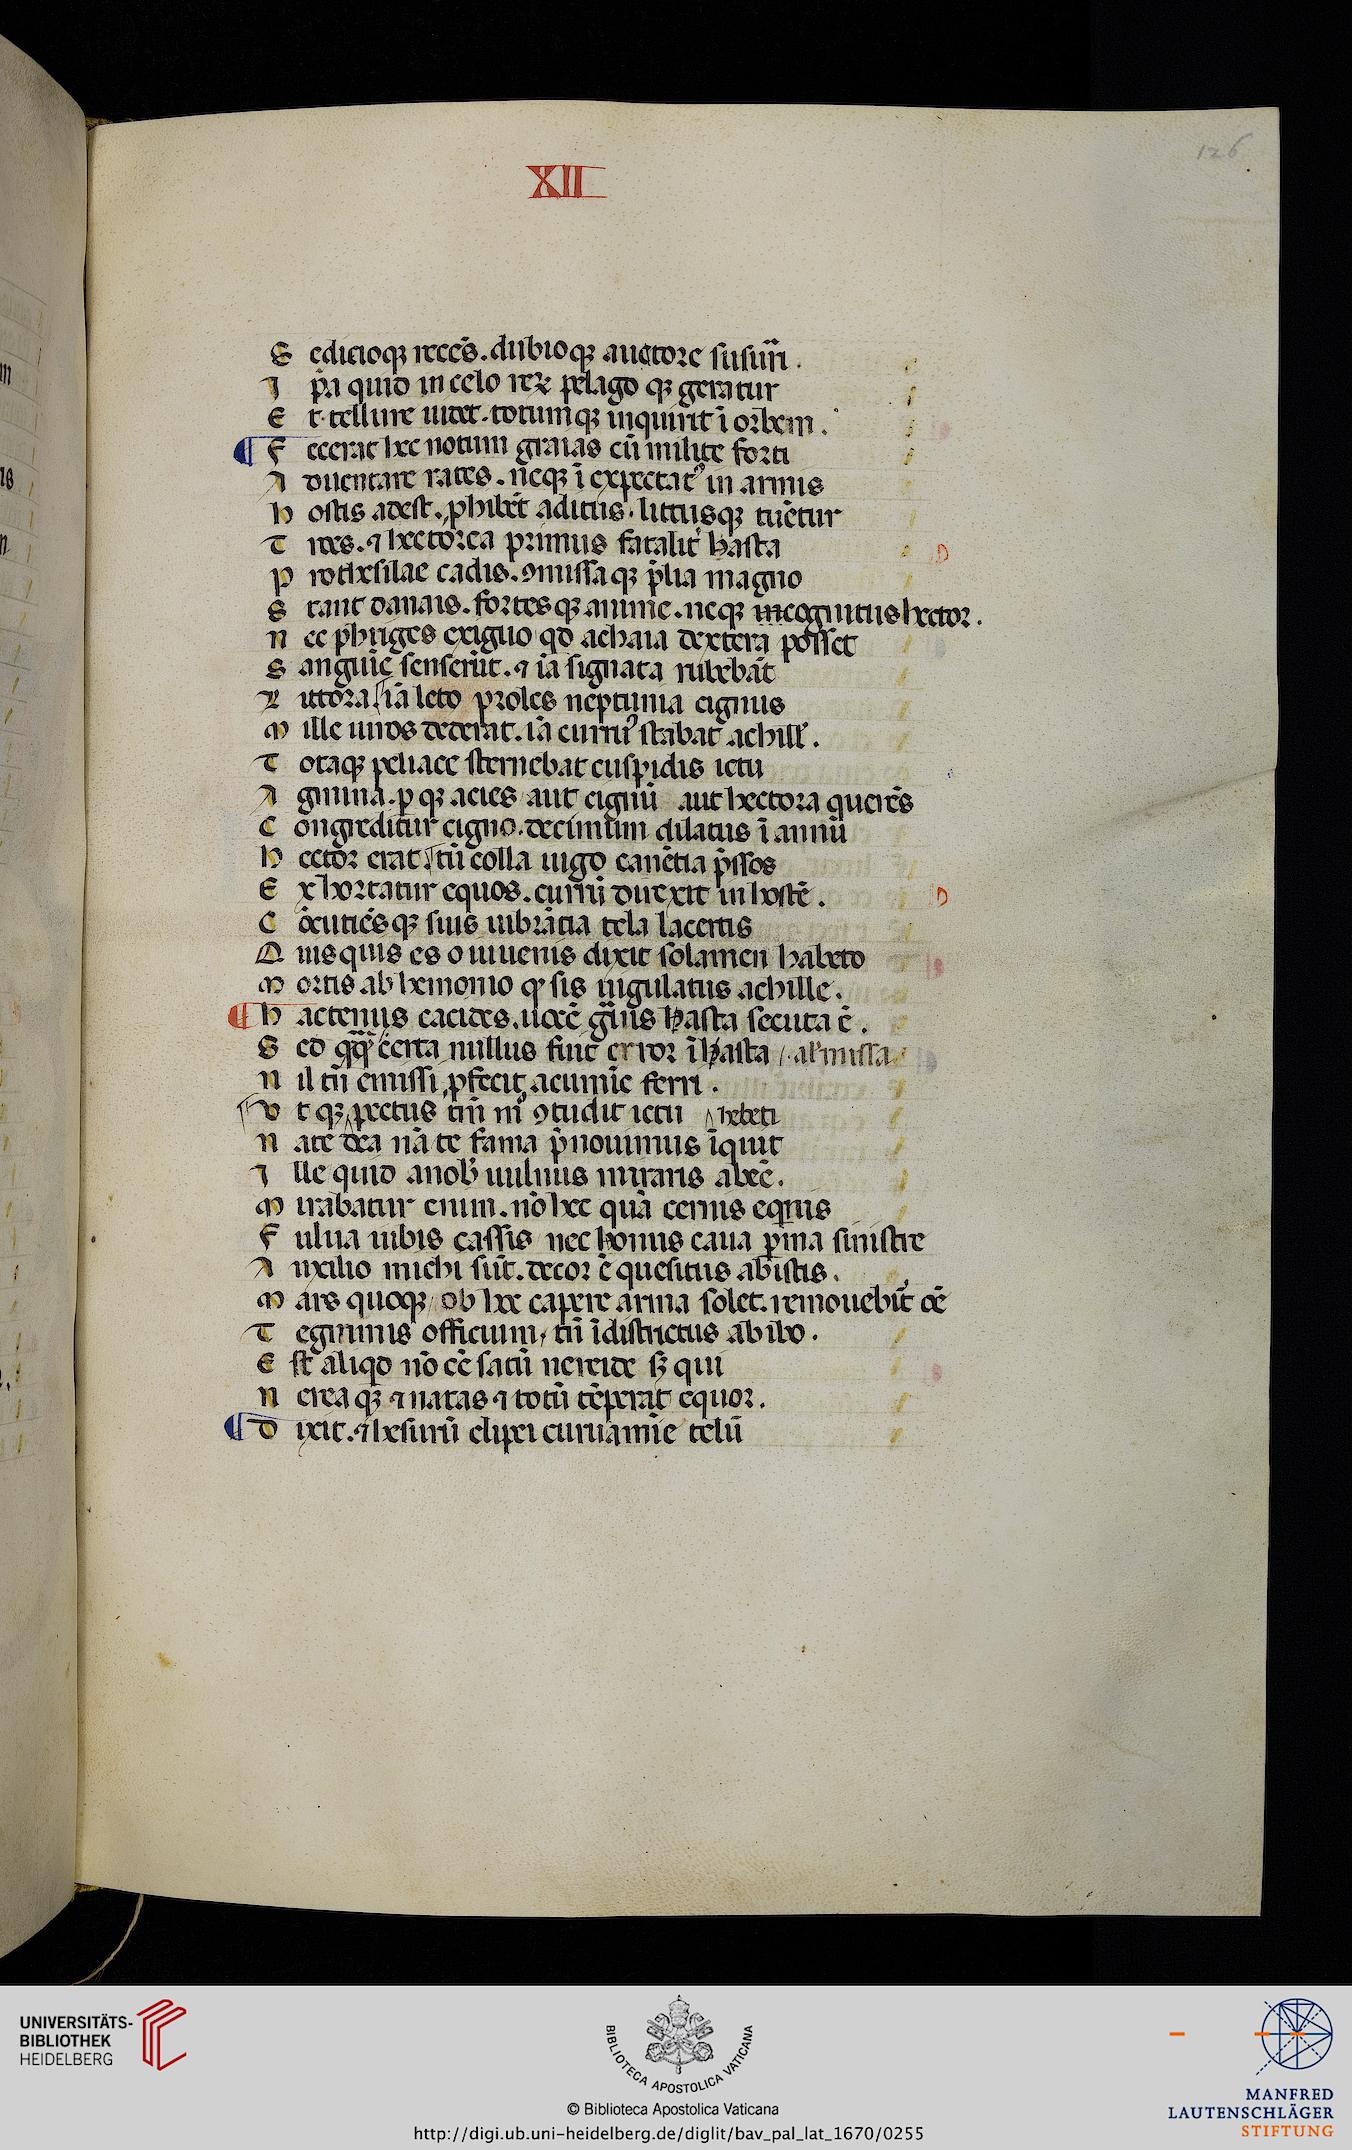 126
XII
S edicioq; recēs . dubioq; auctore susurri .
I pa quid in celo rerꝫ pelago q; geratur
E t tellure uidet . totumq; inquirit ī orbem .
F ecerat hec notum graias cū milite forti
A duentare rates . neq; ī expectatꝰ in armis
H ostis adest . ꝓhibēt aditus . littusq; tuētur
T roes . ⁊ hectorea primus fatalit hasta
P rothesilae cadis . ꝯmissaq; p̄lia magno
S tant danais . fortesq; anime . neq; incognitus hector .
N ec phriges exiguo qd achaia dextera posset
S anguīe senserūt . ⁊ iā sigeata rubebāt
L ittora / iā leto proles neptunia cignus
M ille uiros dederat . iā curruꝰ stabat achill .
T otaq; peliace sternebat cuspidis ictu
A gmina . ꝑ q; acies aut cignū aut hectora querēs
C ongreditur cigno . decimum dilatus ī annū
H ector erat / tū colla iugo canētia p̄ssos
E xhortatur equos . currū direxit in hostē .
C ōcutiēsq; suis uibrātia tela lacertis
Q uisquis es o iuuenis dixit solamen habeto
M ortis ab hemonio qͥ sis iugulatus achille .
H actenus eacides . uocē gͣuis hasta secuta ē .
S ed qͣqͣ certa nullus fuit error ī hasta / . al' missa
N il tn̄ emissi ꝓfecit acumīe ferri .
V t q; pectus tm̄ nī ꝯtudit ictu hebeti
N ate dea nā te fama p̄nouimus īquit
I lle quid a nob uulnus miraris abeē .
M irabatur enim . nō hec quā cernis equnis
F ulua iubis cassis nec honus caua pͥma sinistre
A uxilio michi sūt . decor ē quesitus ab istis .
M ars quoq; ob hec capere arma solet . remouebit oē
T egminis officium , tn̄ īdistrictus abibo .
E st aliqd nō eē satū nereide sꝫ qui
N erea q; ⁊ natas ⁊ totū tēperat equor .
D ixit . ⁊ hesurū clipei curuamīe telū
UNIVERSITÄTS-
BIBLIOTHEK
HEIDELBERG
BIBLIOTECA APOSTOLICA VATICANA
© Biblioteca Apostolica Vaticana
http://digi.ub.uni-heidelberg.de/diglit/bav_pal_lat_1670/0255
MANFRED
LAUTENSCHLÄGER
STIFTUNG